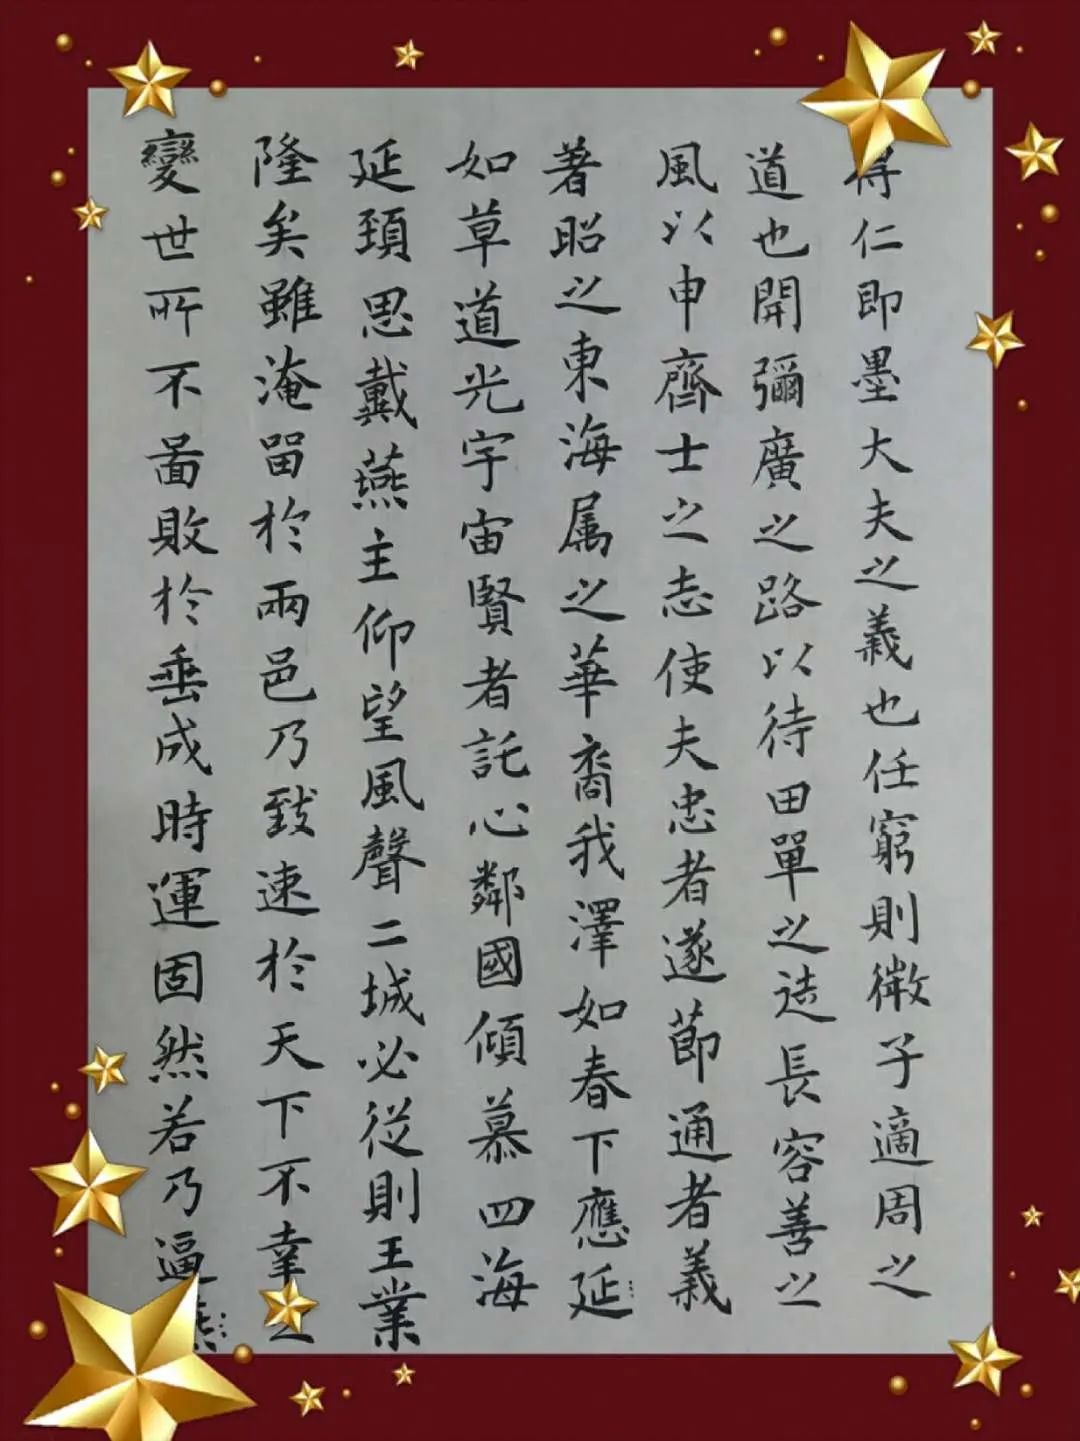 得仁即墨大夫之義也任窮則微子適周之
道也開彌廣之路以待田單之徒長容善之
風以申齊士之志使夫忠者遂節通者義
著昭之東海属之華裔我澤如春下應延
如草道光宇宙賢者託心鄰國傾慕四海
延頚思戴燕主仰望風聲二城必從則王業
隆矣雖淹留於兩邑乃致速於天下不幸之
變世所不啚敗於垂成時運固然若乃逼燕